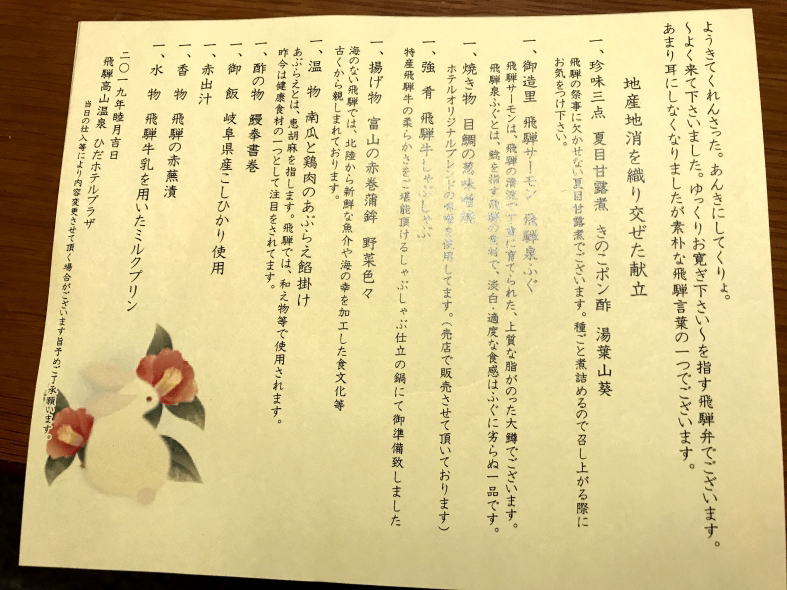 ようきてくれんさった。あんきにしてくりょ。
～よく来て下さいました。ゆっくりお寛ぎ下さい～を指す飛騨弁でございます。
あまり耳にしなくなりましたが素朴な飛騨言葉の一つでございます。
地産地消を織り交ぜた献立
一、珍味三点 夏目甘露煮 きのこポン酢 湯葉山葵
飛騨の祭事に欠かせない夏目甘露煮でございます。種ごと煮詰めるので召し上がる際に
お気をつけ下さい。
一、御造里 飛騨サーモン 飛騨泉ふぐ
飛騨サーモンは、飛騨の清流で丁寧に育てられた、上質な脂がのった大鱒でございます。
飛騨泉ふぐとは、鯰を指す飛騨の食材で、淡白・適度な食感はふぐに劣らぬ一品です。
一、焼き物 目鯛の葱味噌焼
ホテルオリジナルブレンドの味噌を使用してます。(売店で販売させて頂いております)
一、強肴 飛騨牛しゃぶしゃぶ
特産飛騨牛の柔らかさをご堪能頂けるしゃぶしゃぶ仕立の鍋にて御準備致しました
一、揚げ物 富山の赤巻蒲鉾 野菜色々
海のない飛騨では、北陸から新鮮な魚介や海の幸を加工した食文化等
古くから親しまれております。
一、温物 南瓜と鶏肉のあぶらえ餡掛け
あぶらえとは、恵胡麻を指します。飛騨では、和え物等で使用されます。
昨今は健康食材の一つとして注目をされてます。
一、酢の物 鰻奉書巻
一、御飯 岐阜県産こしひかり使用
一、赤出汁
一、香物 飛騨の赤蕪漬
一、水物 飛騨牛乳を用いたミルクプリン
二〇一九年睦月吉日
飛騨高山温泉 ひだホテルプラザ
当日の仕入等により内容変更させて頂く場合がございます旨予めご了承願います。